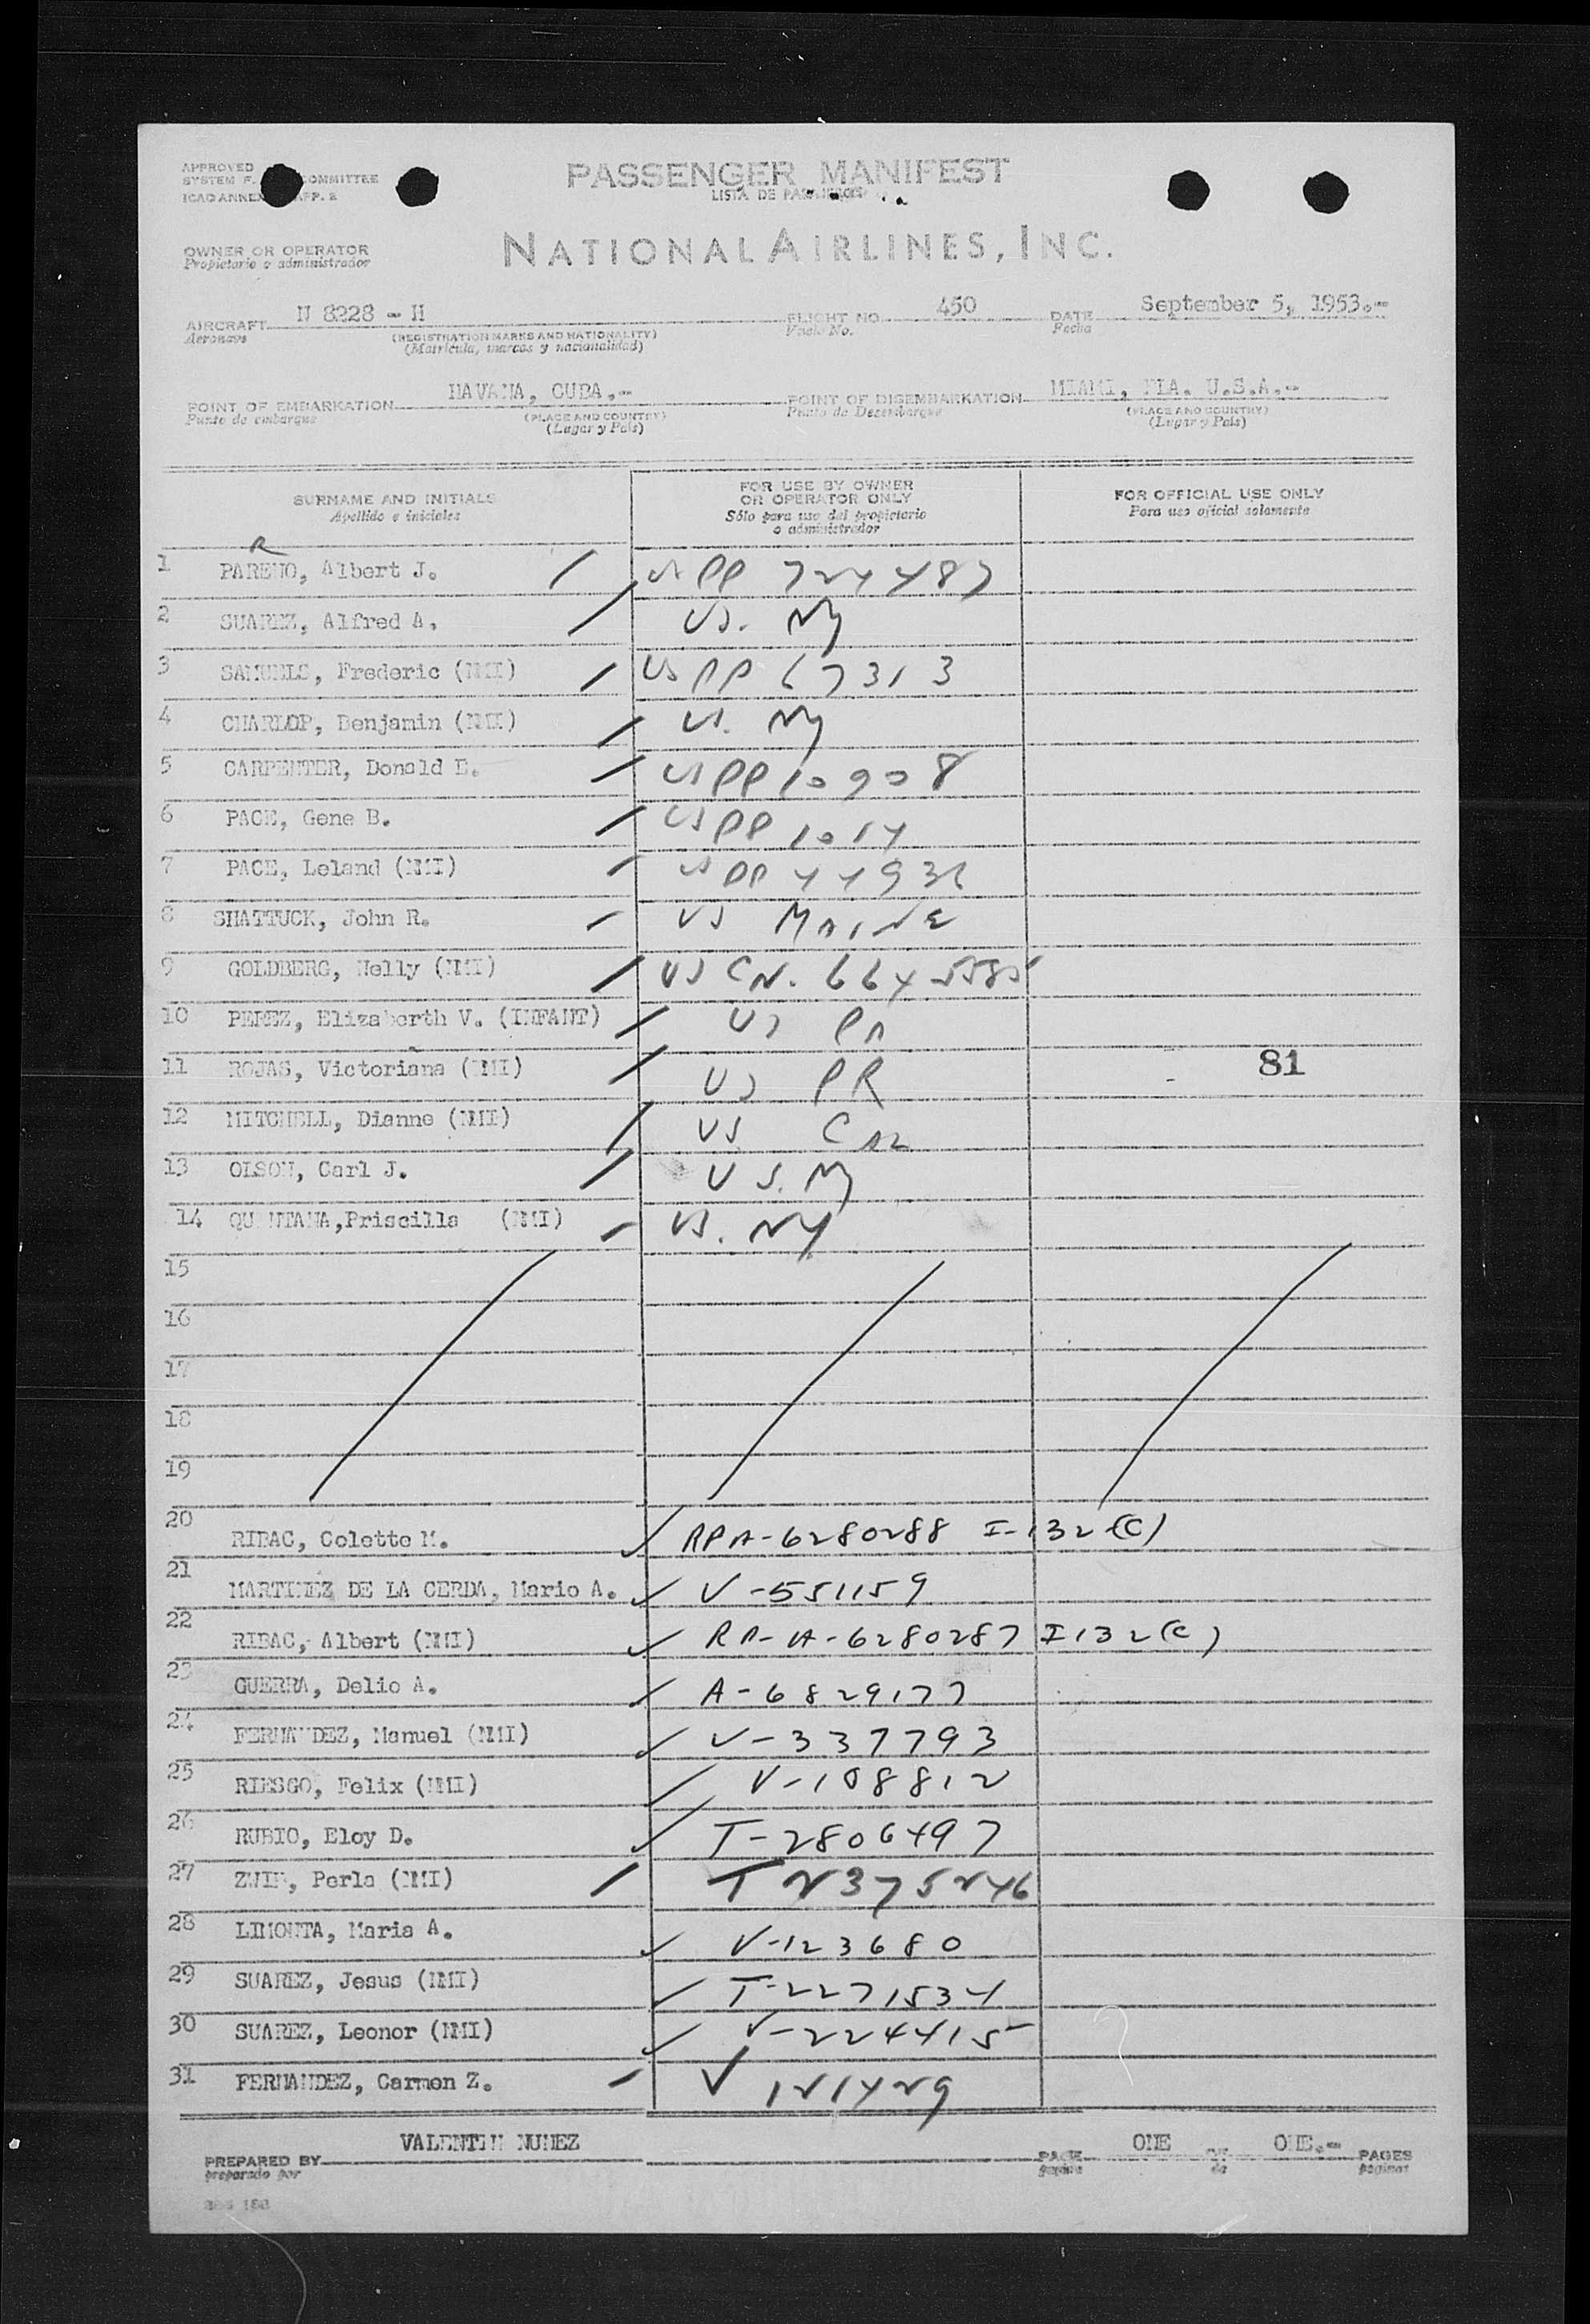 APPROVED
SYSTEM F. COMMITTEE
ICAO ANNEX APP. 2
PASSENGER MANIFEST
LISTA DE PASAJEROS
OWNER OR OPERATOR
Propietario o administrador
NATIONAL AIRLINES, INC.
AIRCRAFT N 8228 - H FLIGHT NO. 450 DATE September 5, 1953.-
Aeronave (REGISTRATION MARKS AND NATIONALITY) Vuelo No. Fecha
(Matricula, marcas y nacionalidad)
POINT OF EMBARKATION HAVANA, CUBA.- POINT OF DISEMBARKATION MIAMI, FLA. U.S.A.-
Punto de embarque (PLACE AND COUNTRY) Punto de Desembarque (PLACE AND COUNTRY)
(Lugar y País) (Lugar y País)
SURNAME AND INITIALS FOR USE BY OWNER OR OPERATOR ONLY FOR OFFICIAL USE ONLY
Apellido e iniciales Sólo para uso del propietario o administrador Para uso oficial solamente
R
1 PARENO, Albert J. / US PP 724487
2 SUAREZ, Alfred A. / US. NY
3 SAMUELS, Frederic (NMI) / US PP 67313
4 CHARLOP, Benjamin (NMI) / US. NY
5 CARPENTER, Donald E. / US PP 10908
6 PACE, Gene B. / US PP 1014
7 PACE, Leland (NMI) / US PP
8 SHATTUCK, John R. / US MAINE
9 GOLDBERG, Nelly (NMI) / US CN. 6645585
10 PEREZ, Elizaberth V. (INFANT) / US PA
11 ROJAS, Victoriana (NMI) / US PR 81
12 MITCHELL, Dianne (NMI) / US CAL
13 OLSON, Carl J. / US. NY
14 QUINTANA,Priscilla (NMI) / US. NY
15
16
17
18
19
20 RIBAC, Colette M. ✓ RPA-6280288 I-132 (C)
21 MARTINEZ DE LA CERDA, Mario A. ✓ V-551159
22 RIBAC, Albert (NMI) ✓ RP-A-6280287 I 132 (C)
23 GUERRA, Delio A. ✓ A-6829177
24 FERNANDEZ, Manuel (NMI) ✓ V-337793
25 RIESGO, Felix (NMI) ✓ V-108812
26 RUBIO, Eloy D. ✓ T-2806497
27 Perla (NMI) / T 2375246
28 LIMONTA, Maria A. ✓ V-123680
29 SUAREZ, Jesus (NMI) ✓ T-2271534
30 SUAREZ, Leonor (NMI) ✓ V-224415
31 FERNANDEZ, Carmen Z. / V 121429
PREPARED BY VALENTIN NUNEZ PAGE ONE OF ONE.- PAGES
preparado por pagina de paginas